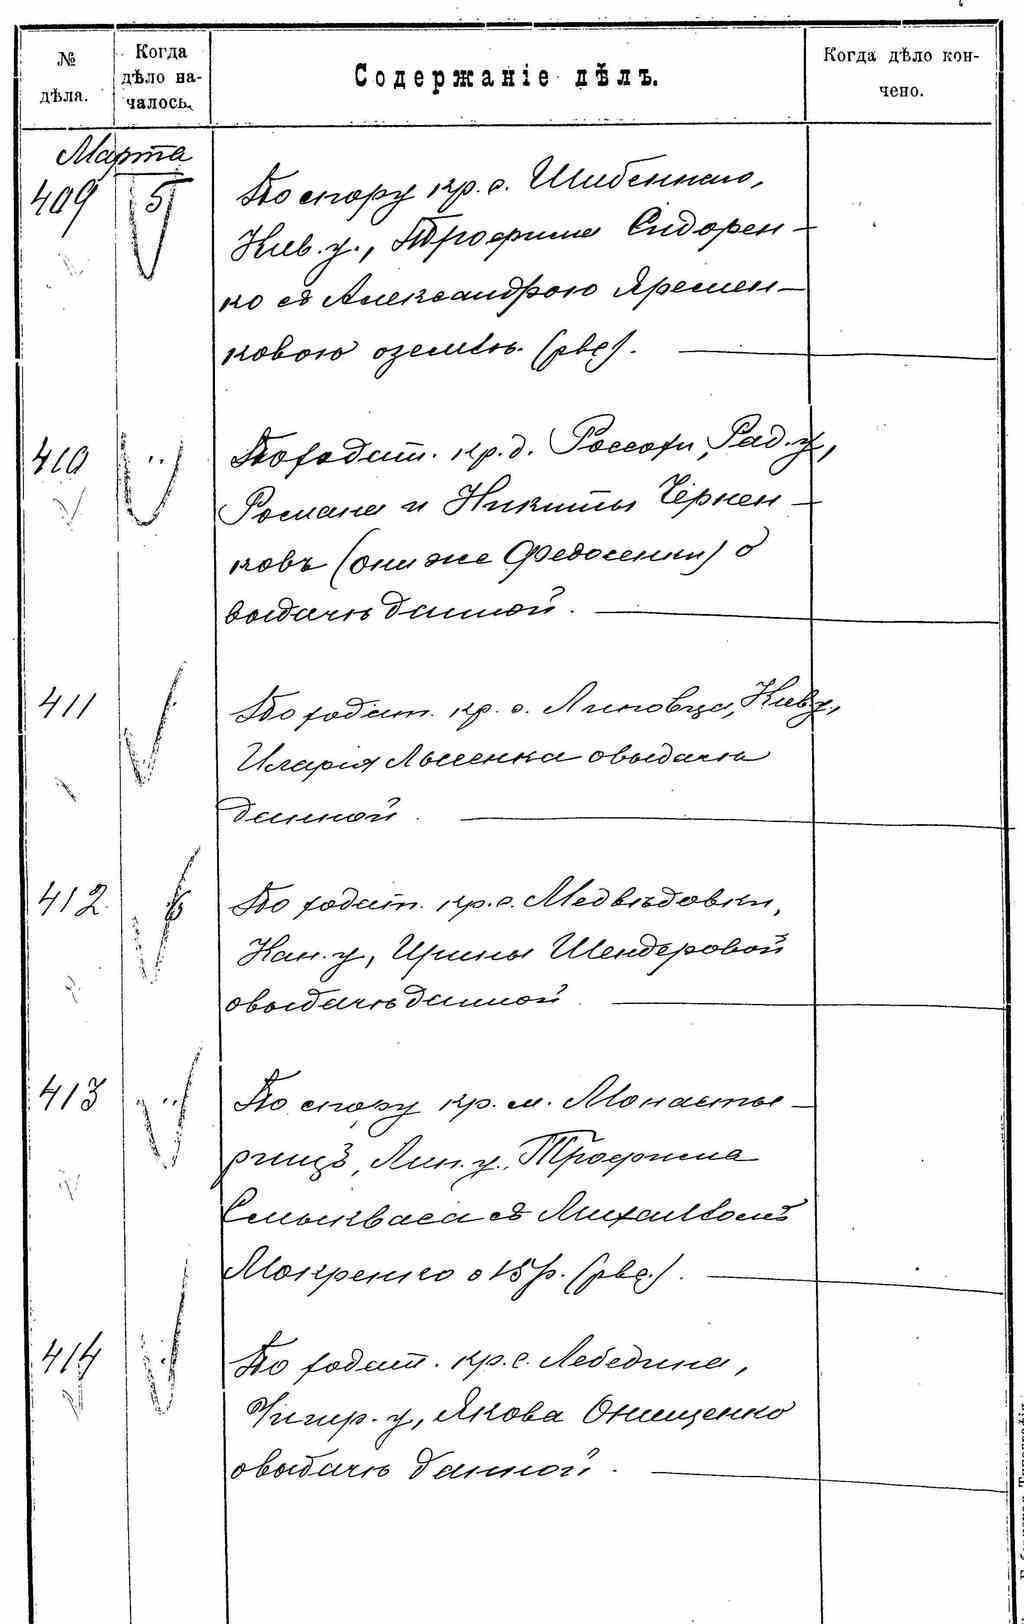 № дѣла.
Когда дѣло на-
чалось.
Содержаніе дѣлъ.
Когда дѣло кон-
чено.
Марта
409 5 По спору кр. с. Шибеннаго,
Кіев. у., Трофима Сидорен-
ко съ Александрою Яремен-
ковою о землѣ. (рве).
410 " По ходат. кр. д. Россохи, Рад. у,
Романа и Никиты Чернен-
ковъ (они же Федосенки) о
выдачѣ данной.
411 По ходат. кр. с. Липовца, Кіев. у,
Иларія Лысенка о выдачѣ
данной.
412 6 По ходат. кр. с. Медвѣдовки,
Кан. у, Ирины Шендеровой
о выдачѣ данной
413 " По спору кр. м. Монасты-
рищъ, Лип. у. Трофима
Смыкваса съ
Мокренко о 15 р. (рве.).
414 " По ходат. кр. с. Лебедина,
Чигир. у, Якова Онищенко
о выдачѣ данной.